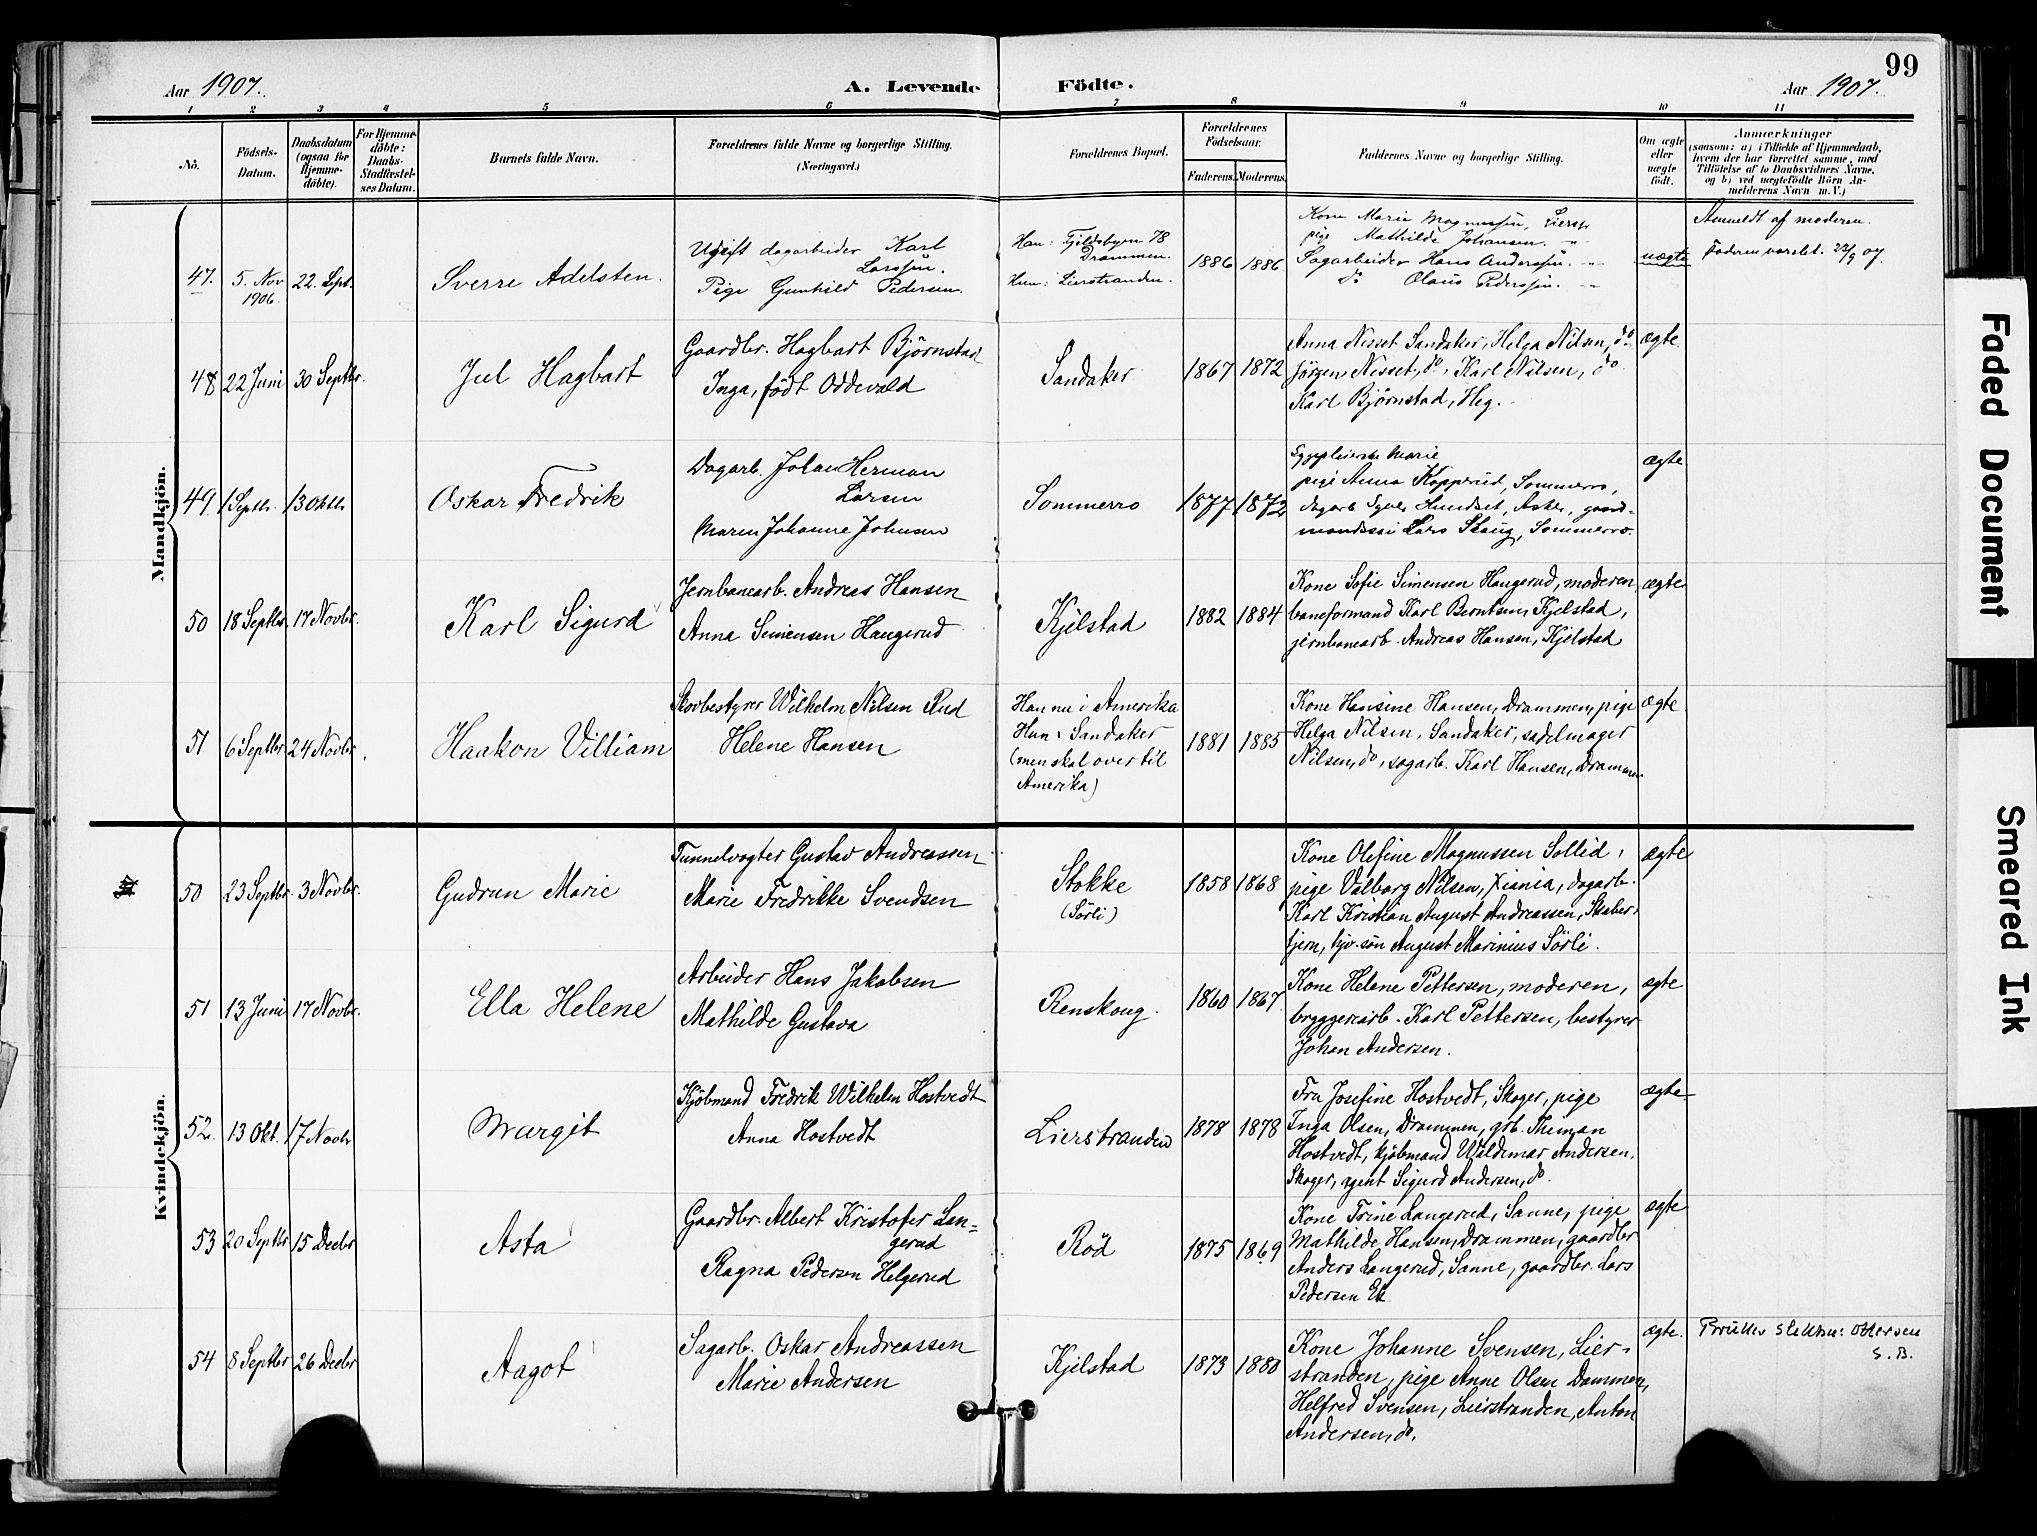 99
Aar 1907.
A. Levende Födte.
Aar 1907.
1 2 3 4 5 6 7 8 9 10 11
No.
Födsels-
Datum.
Daabsdatum
(ogsaa for
Hjemme-
döbte).
For Hjemme-
döbte:
Daabs-
Stadfæstel-
ses Datum.
Barnets fulde Navn.
Forældrenes fulde Navne og borgerlige Stilling.
(Næringsvei.)
Forældrenes Bopæl.
Forældrenes
Födselsaar.
Faderens. Moderens.
Faddernes Navne og borgerlige Stilling.
Om ægte
eller
uægte
födt.
Anmærkninger
(saasom: a) i Tilfælde af Hjemmedaab,
hvem der har forrettet samme, med
Tilföielse af to Daabsvidners Navne,
og b) ved uægtefödte Börn An-
melderens Navn m. V.)
Mandkjön.
47. 5. Nov 1906. 22. Sept.
Sverre Adelsten.
Ugift dagarbeider Karl
Larssen.
Pige Gunhild Pedersen.
Han: Fjeldsbyen 78
Drammen.
Hun: Lierstranden.
1886 1886
Kone Marie Magnussen, Lierstr
pige Mathilde Johansen. -"-
Sagarbeider Hans Anderssen. -"-
do Olaus Pederssen. -"-
uægte
Anmeldt af moderen.
Faderen varslet. 23/9 07.
48 22 Juni 30 Septbr.
Juel Hagbart
Gaardbr. Hagbart Björnstad
Inga, født Oddevald
Sandaker
1867 1872
Anna Nisset Sandaker, Helga Nilsen, do
Jörgen Nisset, do, Karl Nilsen, do
Karl Björnstad, Heg.
ægte
49 1 Septbr. 13 Oktbr
Oskar Fredrik
Dagarb. Johan Herman
Larsen
Maren Johanne Johnsen
Sommerro
1877 1872
Marie
pige Anna Kopperud, Sommerro,
dagarb Syver Hundset, Asker, gaard-
mandssøn Lars Skaug, Sommerro.
ægte
50 18 Septbr. 17 Novbr.
Karl Sigurd
Jernbanearb. Andreas Hansen
Anna Simensen Haugerud
Kjelstad
1882 1884
Kone Sofie Simensen Haugerud, moderen
baneformand Karl Berntsen, Kjelstad,
jernbanearb. Andreas Hansen, Kjelstad
ægte
51 6 Septbr 24 Novbr.
Haakon Villiam
Skovbestyrer Wilhelm Nilsen Rud
Helene Hansen
Han nu i Amerika
Hun: Sandaker
(men skal over til
Amerika)
1881 1885
Kone Hansine Hansen, Drammen, pige
Helga Nilsen, Sandaker, sadelmager
Nilsen, do, sagarb. Karl Hansen, Drammen
ægte
Kvindekjön.
50 23 Septbr. 3 Novbr.
Gudrun Marie
Tunnelvogter Gustav Andreassen
Marie Fredrikke Svendsen
Stokke
(Sörli)
1858 1868
Kone Olefine Magnussen Sollid,
pige Valborg Nilsen, Xiania, dagarb.
Karl Kristian August Andreassen, Skaber-
sjern, hjv. søn August Marinius Sörli.
ægte
51 13 Juni 17 Novbr.
Ella Helene
Arbeider Hans Jakobsen
Mathilde Gustava
Renskoug.
1860 1867
Kone Helene Pettersen, moderen,
bryggeriarb. Karl Pettersen, bestyrer
Johan Andersen.
ægte
52. 13 Okt. 17 Novbr
Margit
Kjöbmand Fredrik Wilhelm Hostvedt
Anna Hostvedt
Lierstranden
1878 1878
Fru Josefine Hostvedt, Skoger, pige
Inga Olsen, Drammen, grb. Theman
Hostvedt, kjöbmand Waldemar Andersen,
Skoger, agent Sigurd Andersen, do.
ægte
53 20 Septbr 15 Decbr
Asta
Gaardbr. Albert Kristofer Lan-
gerud
Ragna Pedersen Helgerud
Röd
1875 1869
Kone Trine Langerud, Sanne, pige
Mathilde Hansen, Drammen, gaardbr
Anders Langerud, Sanne, gaardbr. Lars
Pedersen Ek
ægte
54 8 Septbr 26 Decbr
Aagot
Sagarb. Oskar Andreassen
Marie Andersen
Kjelstad
1873 1880
Kone Johanne Svensen, Lier-
stranden, pige Anne Olsen Dammen,
Helfred Svensen, Lierstranden, Anton
Andersen, do.
ægte.
Bruker slektsn: Ottersen
S.B.
Faded Document
Smeared Ink